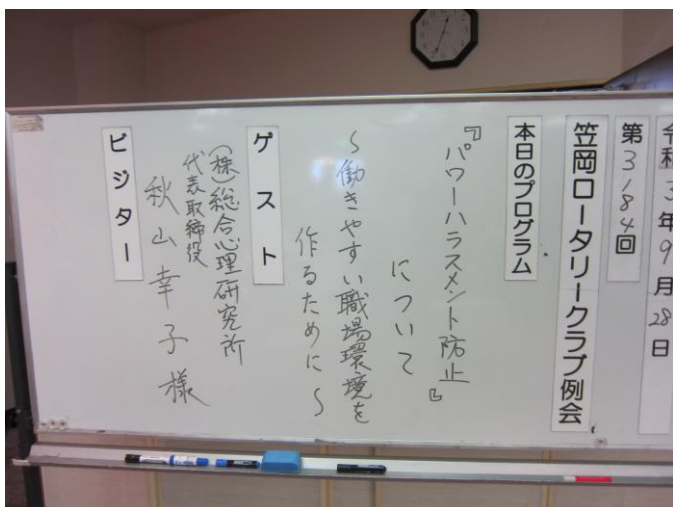 令和3年9月28日
第3184回
笠岡ロータリークラブ例会
本日のプログラム
『パワーハラスメント防止』
について
～働きやすい職場環境を
作るために～
ゲスト
(株)総合心理研究所
代表取締役
秋山幸子様
ビジター